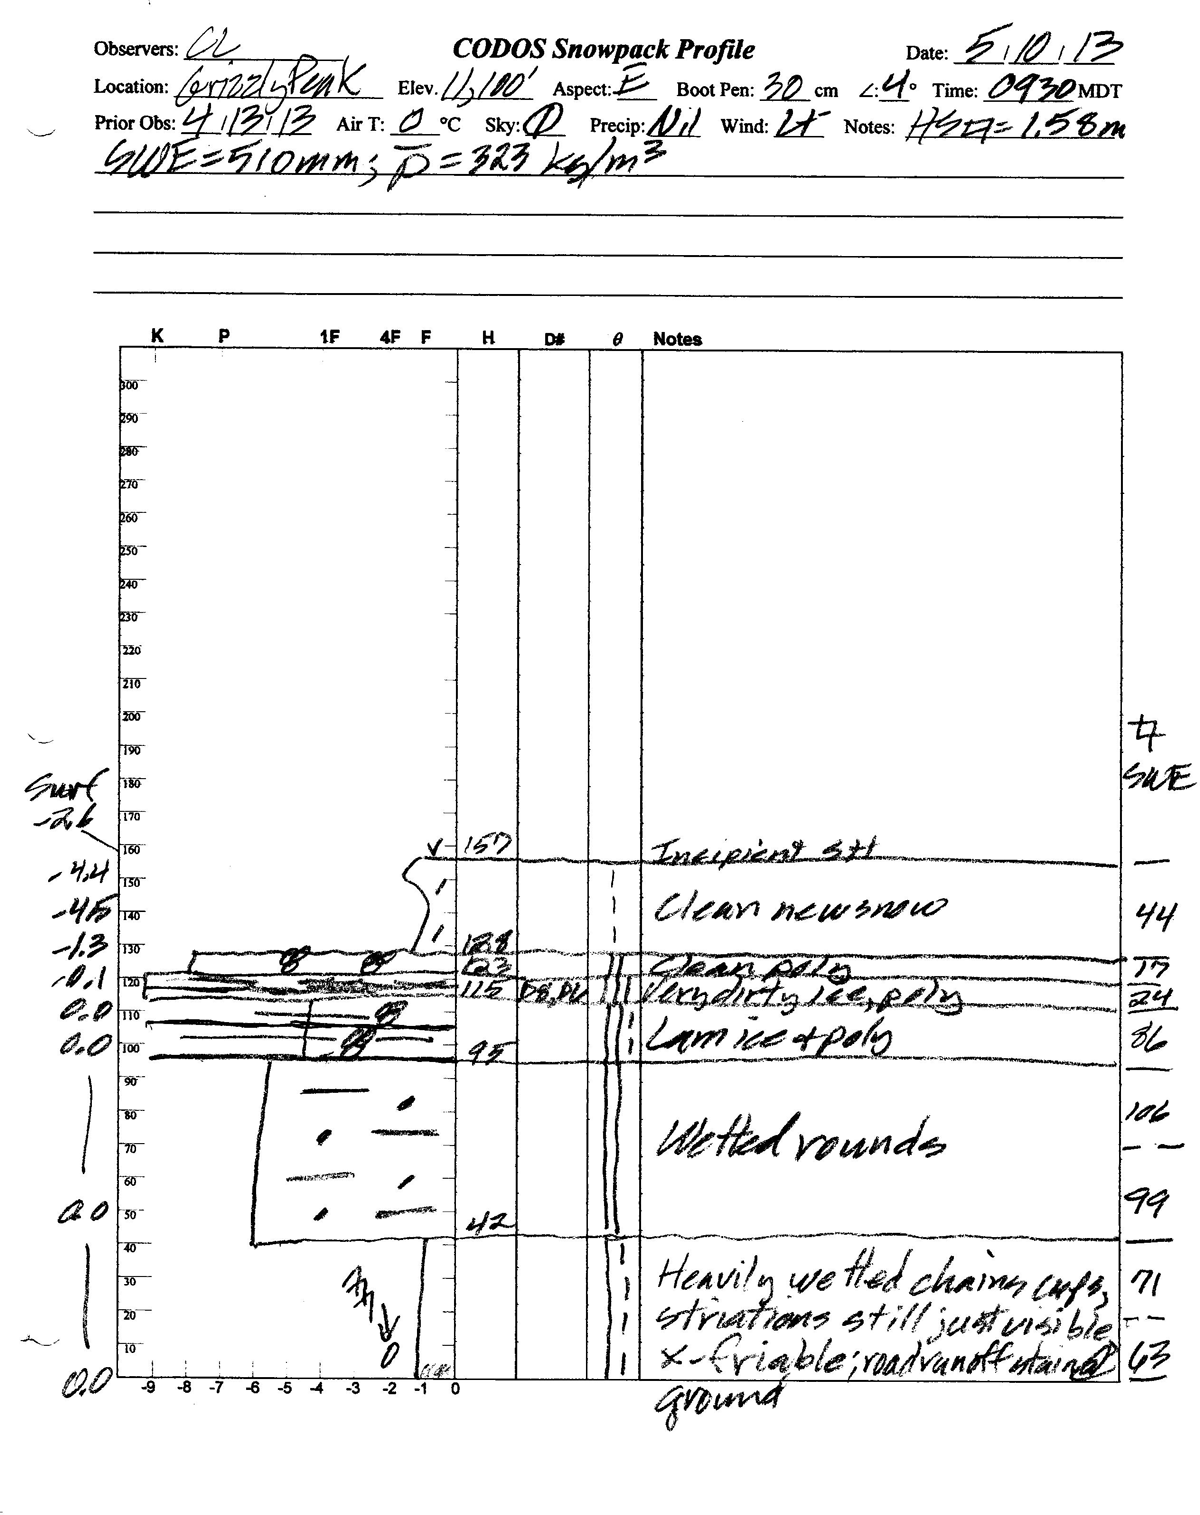 Observers: CL CODOS Snowpack Profile Date: 5/10/13
Location: Grizzly Peak Elev. 11,100' Aspect: E Boot Pen: 30 cm ∠: 4° Time: 0930 MDT
Prior Obs: 4/13/13 Air T: 0 °C Sky: Precip: Nil Wind: Lt Notes: HS = 1.58m
SWE = 510mm; ρ̅ = 323 kg/m³
K P 1F 4F F H D# θ Notes
300
290
280
270
260
250
240
230
220
210
200
190
SWE
180
Surf
170
-2.6
160 157 Incipient SH
-4.4
150
-4.5 140 Clean new snow 44
-1.3 130 128
123 Clean poly 17
-0.1 120 115 D8, DU Very dirty ice, poly 24
0.0 110
0.0 100 95 Lam ice + poly 86
90
80 106
70 Wetted rounds
60
0.0 50 99
42
40
30 Heavily wetted chains cups, 71
20 striations still just visible
10 x-friable; road runoff stained 63
0.0 -9 -8 -7 -6 -5 -4 -3 -2 -1 0 ground